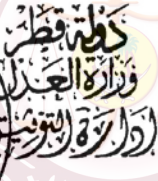 دولة قطر
وزارة العدل
إدارة التوثيـ